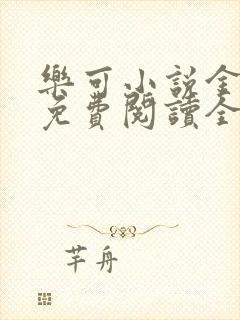 樂可小說全
免費閱讀全
芊舟